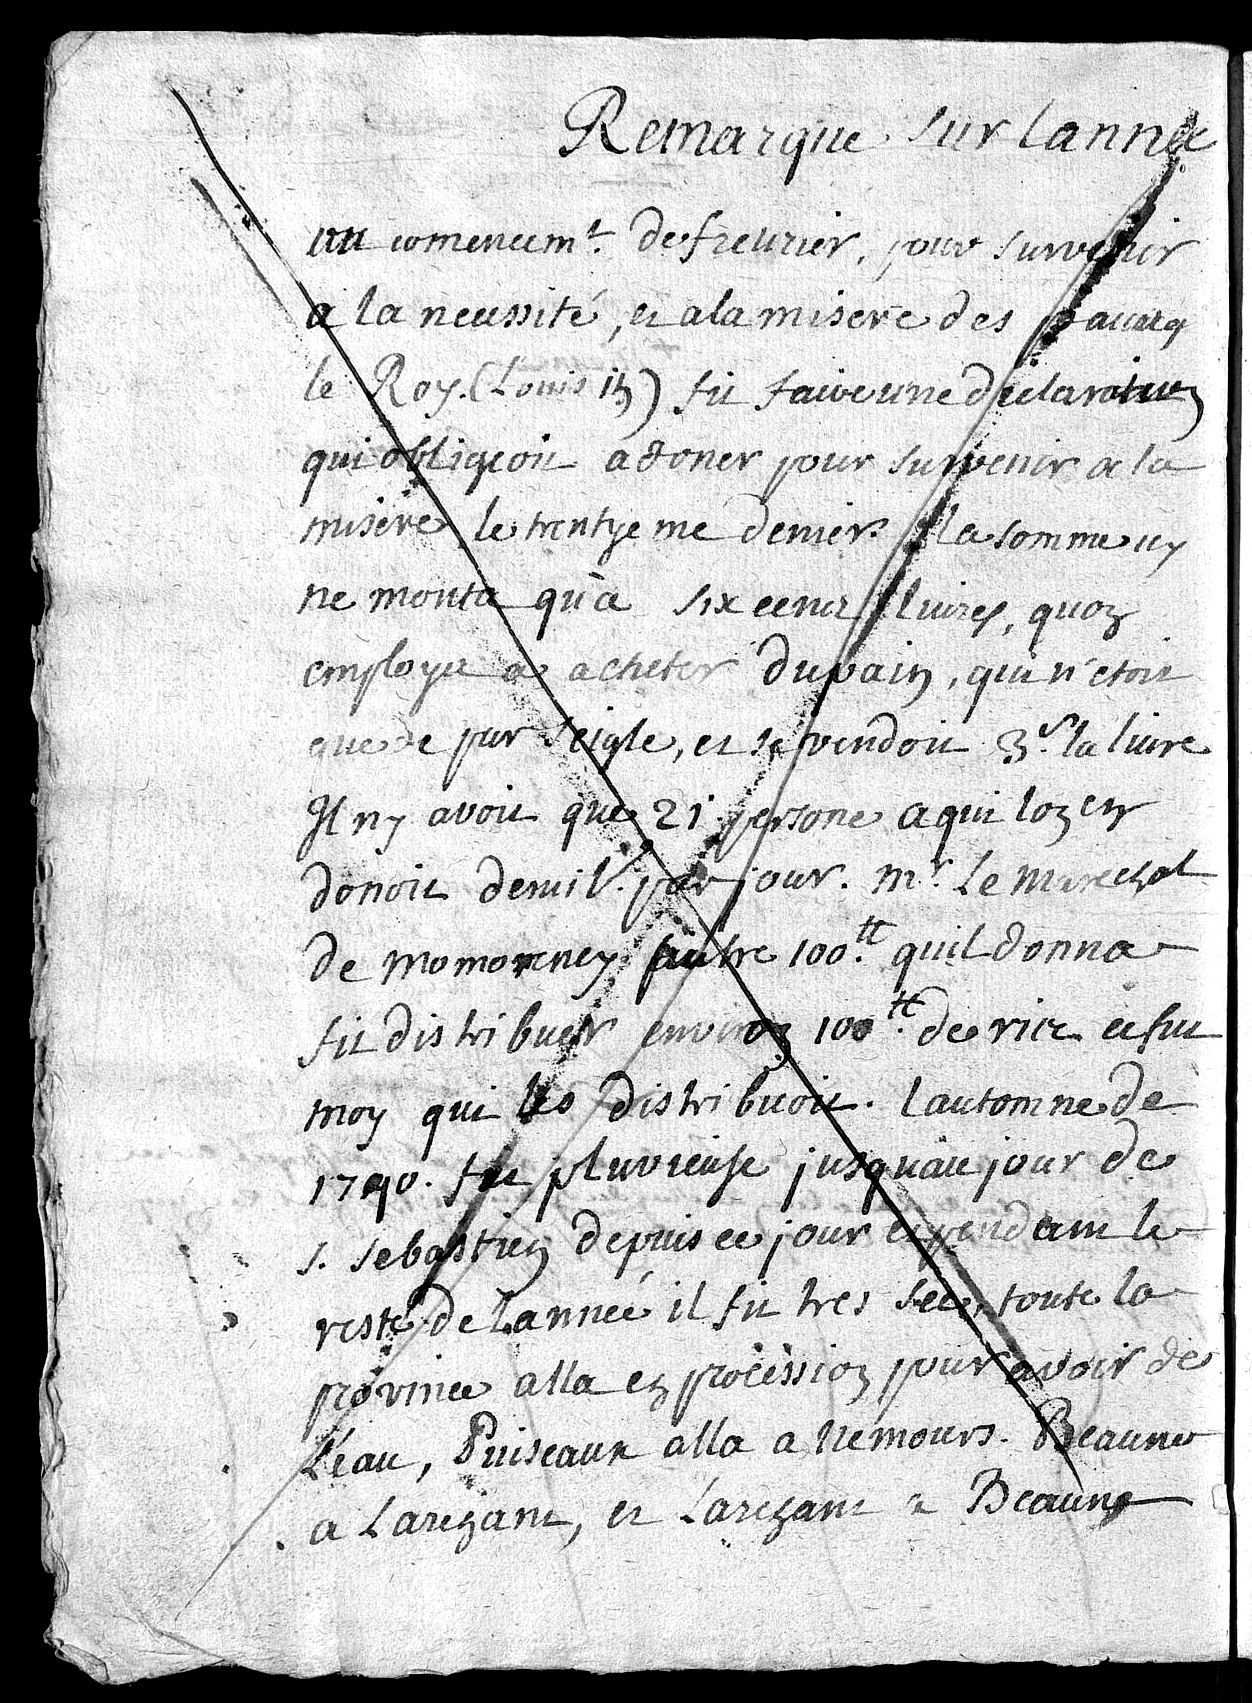 Remarque sur lannee
au comencemt. de freurier, pour survenir
a la necessité, et a la misere des pauurq
le Roy. (Louis 15) fit faire une declaration
qui obligeoit a doner pour survenir a la
misere, le trentyeme denier. la somme ny
ne monta qu'à six cent livres, quon
employa a acheter du pain, qui n'etoit
que de pur seigle, et se vendoit 3s. la livre
Il ny avoit que 21. persone a qui lon en
donoit demi l. par jour. mr. Le Marechal
de momorency outre 100.tt quil donna
fit distribuer environ 100.tt de rice ce fut
moy qui les distribuoit. lautomne de
1740. fut pluvieuse jusquau jour de
s. sebastien depuis ce jour et pendant le
reste de lanneé il fut tres sec, toute la
province alla en procession pour avoir de
l'eau, Puiseaux alla a Nemours. Beaune
a Larchant, et Larchant a Beaune